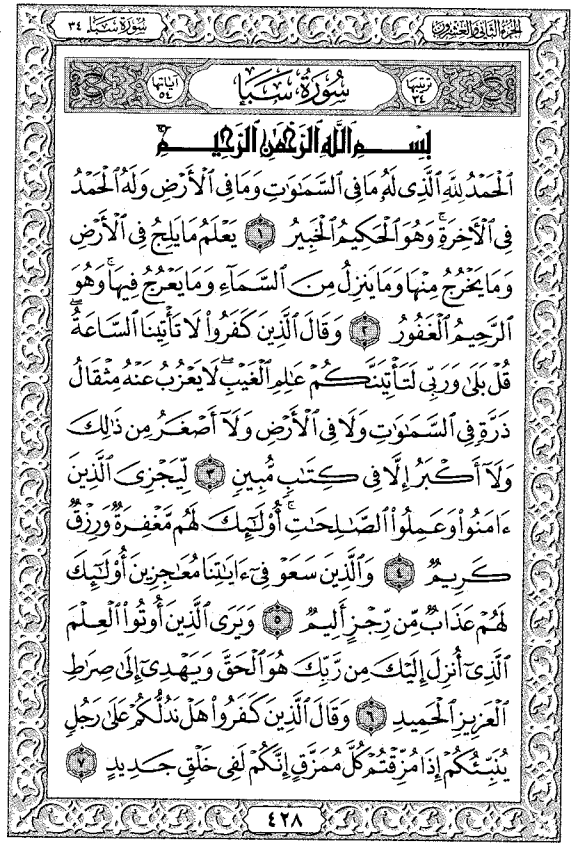 سُورَةُ سَبَإٍ ٣٤
الجزء الثاني والعشرون
ترتيبها ٣٤
سُورَةُ سَبَإٍ
آياتها ٥٤
بِسْمِ ٱللَّهِ ٱلرَّحْمَٰنِ ٱلرَّحِيمِ
ٱلْحَمْدُ لِلَّهِ ٱلَّذِى لَهُۥ مَا فِى ٱلسَّمَٰوَٰتِ وَمَا فِى ٱلْأَرْضِ وَلَهُ ٱلْحَمْدُ
فِى ٱلْأَخِرَةِ ۚ وَهُوَ ٱلْحَكِيمُ ٱلْخَبِيرُ ١ يَعْلَمُ مَا يَلِجُ فِى ٱلْأَرْضِ
وَمَا يَخْرُجُ مِنْهَا وَمَا يَنزِلُ مِنَ ٱلسَّمَآءِ وَمَا يَعْرُجُ فِيهَا ۚ وَهُوَ
ٱلرَّحِيمُ ٱلْغَفُورُ ٢ وَقَالَ ٱلَّذِينَ كَفَرُوا۟ لَا تَأْتِينَا ٱلسَّاعَةُ ۖ
قُلْ بَلَىٰ وَرَبِّى لَتَأْتِيَنَّكُمْ عَٰلِمِ ٱلْغَيْبِ ۖ لَا يَعْزُبُ عَنْهُ مِثْقَالُ
ذَرَّةٍ فِى ٱلسَّمَٰوَٰتِ وَلَا فِى ٱلْأَرْضِ وَلَآ أَصْغَرُ مِن ذَٰلِكَ
وَلَآ أَكْبَرُ إِلَّا فِى كِتَٰبٍ مُّبِينٍ ٣ لِّيَجْزِىَ ٱلَّذِينَ
ءَامَنُوا۟ وَعَمِلُوا۟ ٱلصَّٰلِحَٰتِ ۚ أُو۟لَٰٓئِكَ لَهُم مَّغْفِرَةٌ وَرِزْقٌ
كَرِيمٌ ٤ وَٱلَّذِينَ سَعَوْ فِىٓ ءَايَٰتِنَا مُعَٰجِزِينَ أُو۟لَٰٓئِكَ
لَهُمْ عَذَابٌ مِّن رِّجْزٍ أَلِيمٌ ٥ وَيَرَى ٱلَّذِينَ أُوتُوا۟ ٱلْعِلْمَ
ٱلَّذِىٓ أُنزِلَ إِلَيْكَ مِن رَّبِّكَ هُوَ ٱلْحَقَّ وَيَهْدِىٓ إِلَىٰ صِرَٰطِ
ٱلْعَزِيزِ ٱلْحَمِيدِ ٦ وَقَالَ ٱلَّذِينَ كَفَرُوا۟ هَلْ نَدُلُّكُمْ عَلَىٰ رَجُلٍ
يُنَبِّئُكُمْ إِذَا مُزِّقْتُمْ كُلَّ مُمَزَّقٍ إِنَّكُمْ لَفِى خَلْقٍ جَدِيدٍ ٧
٤٢٨